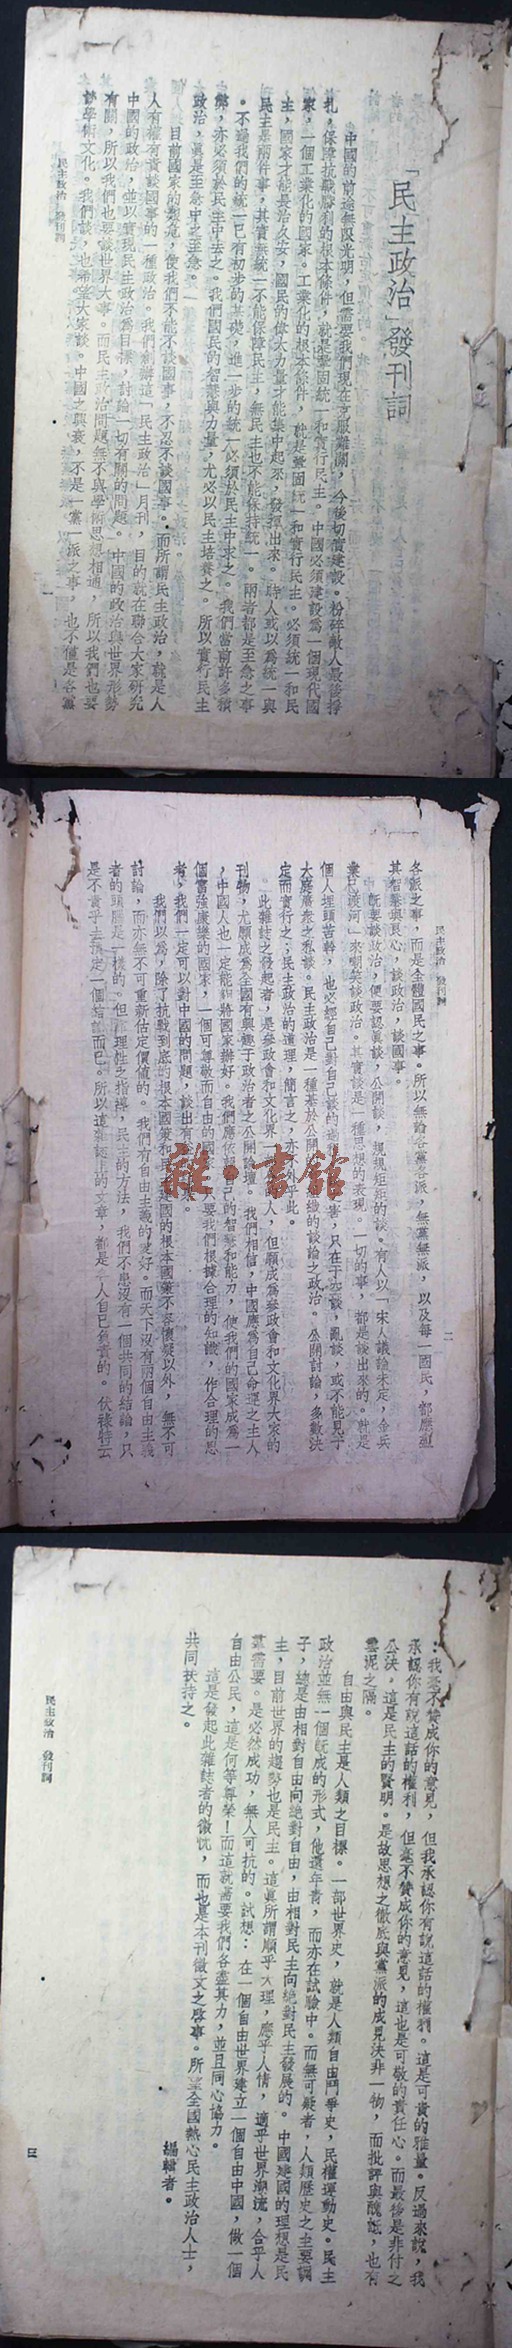 「民主政治」發刊詞
中國的前途無限光明，但需要我們現在克服難關，今後切實建設。粉碎敵人最後掙
扎，保障抗戰勝利的根本條件，就是鞏固統一和實行民主。中國必須建設為一個現代國
家，一個工業化的國家。工業化的根本條件，就是鞏固統一和實行民主。必須統一和民
主，國家才能長治久安，國民的偉大力量才能集中起來，發揮出來。時人或以為統一與
民主是兩件事，其實無統一不能保障民主，無民主也不能保持統一。兩者都是至急之事
。不過我們的統一已有初步的基礎，進一步的統一必須於民主中求之。我們當前許多積
弊，亦必須於民主中去之。我們國民的智慧與力量，尤必以民主培養之。所以實行民主
政治，眞是至急中之至急。
目前國家的艱危，使我們不能不談國事，不忍不談國事。而所謂民主政治，就是人
人有權有責談國事的一種政治。我們創辦這「民主政治」月刊，目的就在聯合大家研究
中國的政治，並以實現民主政治為目標，討論一切有關的問題。中國的政治與世界形勢
有關，所以我們也要談世界大事。而民主政治問題無不與學術思想相通，所以我們也要
談學術文化。我們談，也希望大家談。中國之興衰，不是一黨一派之事，也不僅是各黨
民主政治 發刊詞
一
民主政治 發刊詞
二
各派之事，而是全體國民之事。所以無論各黨各派，無黨無派，以及每一國民，都應迴
其智慧與良心，談政治，談國事。
既要談政治，便要認眞談，公開談，規規矩矩的談。有人以「宋人議論未定，金兵
業已渡河」來嘲笑談政治。其實談是一種思想的表現。一切的事，都是談出來的。就是
個人埋頭苦幹，也必經自己對自己談的過程。害，只在于空談，亂談，或不能見于
大庭廣衆之私談。民主政治是一種基於公開的組織的談論之政治。公開討論，多數決
定而實行之；民主政治的道理，簡言之，亦不外乎此。
此雜誌之發起者，是參政會和文化界一人，但願成為參政會和文化界大家的
刊物，尤願成為全國有興趣于政治者之公開論壇。我們相信，中國應為自己命運之主人
，中國人也一定能夠將國家辦好。我們應依自己的智慧和能力，使我們的國家成為一
個富強康樂的國家，一個可尊敬而自由的國。只要我們根據合理的知識，作合理的思
考，我們一定可以對中國的問題，談出有來。
我們以為，除了抗戰到底的根本國策和民建國的根本國策不容懷疑以外，無不可
討論，而亦無不可重新估定價值的。我們有自由主義的愛好。而天下沒有兩個自由主義
者的頭腦是一樣的。但在理性之指導，民主的方法，我們不患沒有一個共同的結論，只
是不貴乎去預定一個結論而已。所以這雜誌上的文章，都是各人自己負責的。伏祿特云
：我毫不贊成你的意見，但我承認你有說這話的權利。這是可貴的雅量。反過來說，我
承認你有說這話的權利，但毫不贊成你的意見，這也是可敬的責任心。而最後是非付之
公決，這是民主的賢明。是故思想之徹底與黨派的成見決非一物，而批評與醜詆，也有
雲泥之隔。
自由與民主是人類之目標。一部世界史，就是人類自由鬥爭史，民權運動史。民主
政治並無一個既成的形式，他還年青，而亦在試驗中。而無可疑者，人類歷史之主要調
子，總是由相對自由向絕對自由，由相對民主向絕對民主發展的。中國建國的理想是民
主，目前世界的趨勢也是民主。這眞所謂順乎天理，應乎人情，適乎世界潮流，合乎人
羣需要。是必然成功，無人可抗的。試想：在一個自由世界建立一個自由中國，做一個
自由公民，這是何等尊榮！而這就需要我們各盡其力，並且同心協力。
這是發起此雜誌者的微忱，而也是本刊徵文之啟事。所望全國熱心民主政治人士，
共同扶持之。
編輯者。
民主政治 發刊詞
三
雜·書館